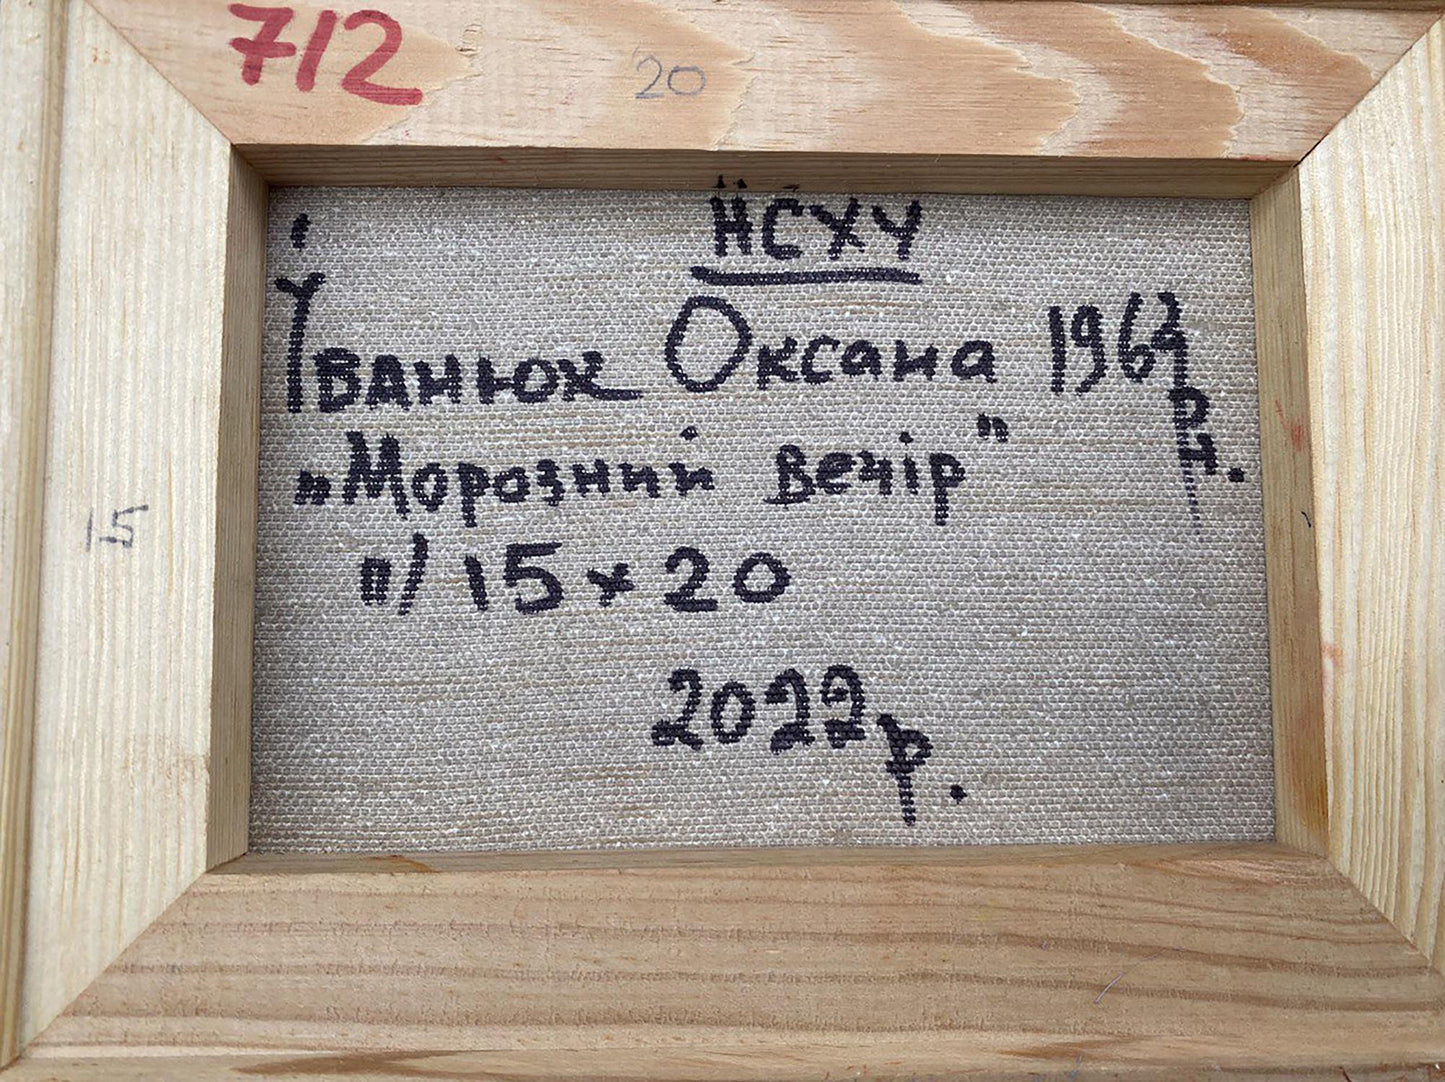 712
20
НСХУ
Іванюх Оксана 1962 р.н.
„Морозний вечір"
п/ 15 x 20
2022 р.
15